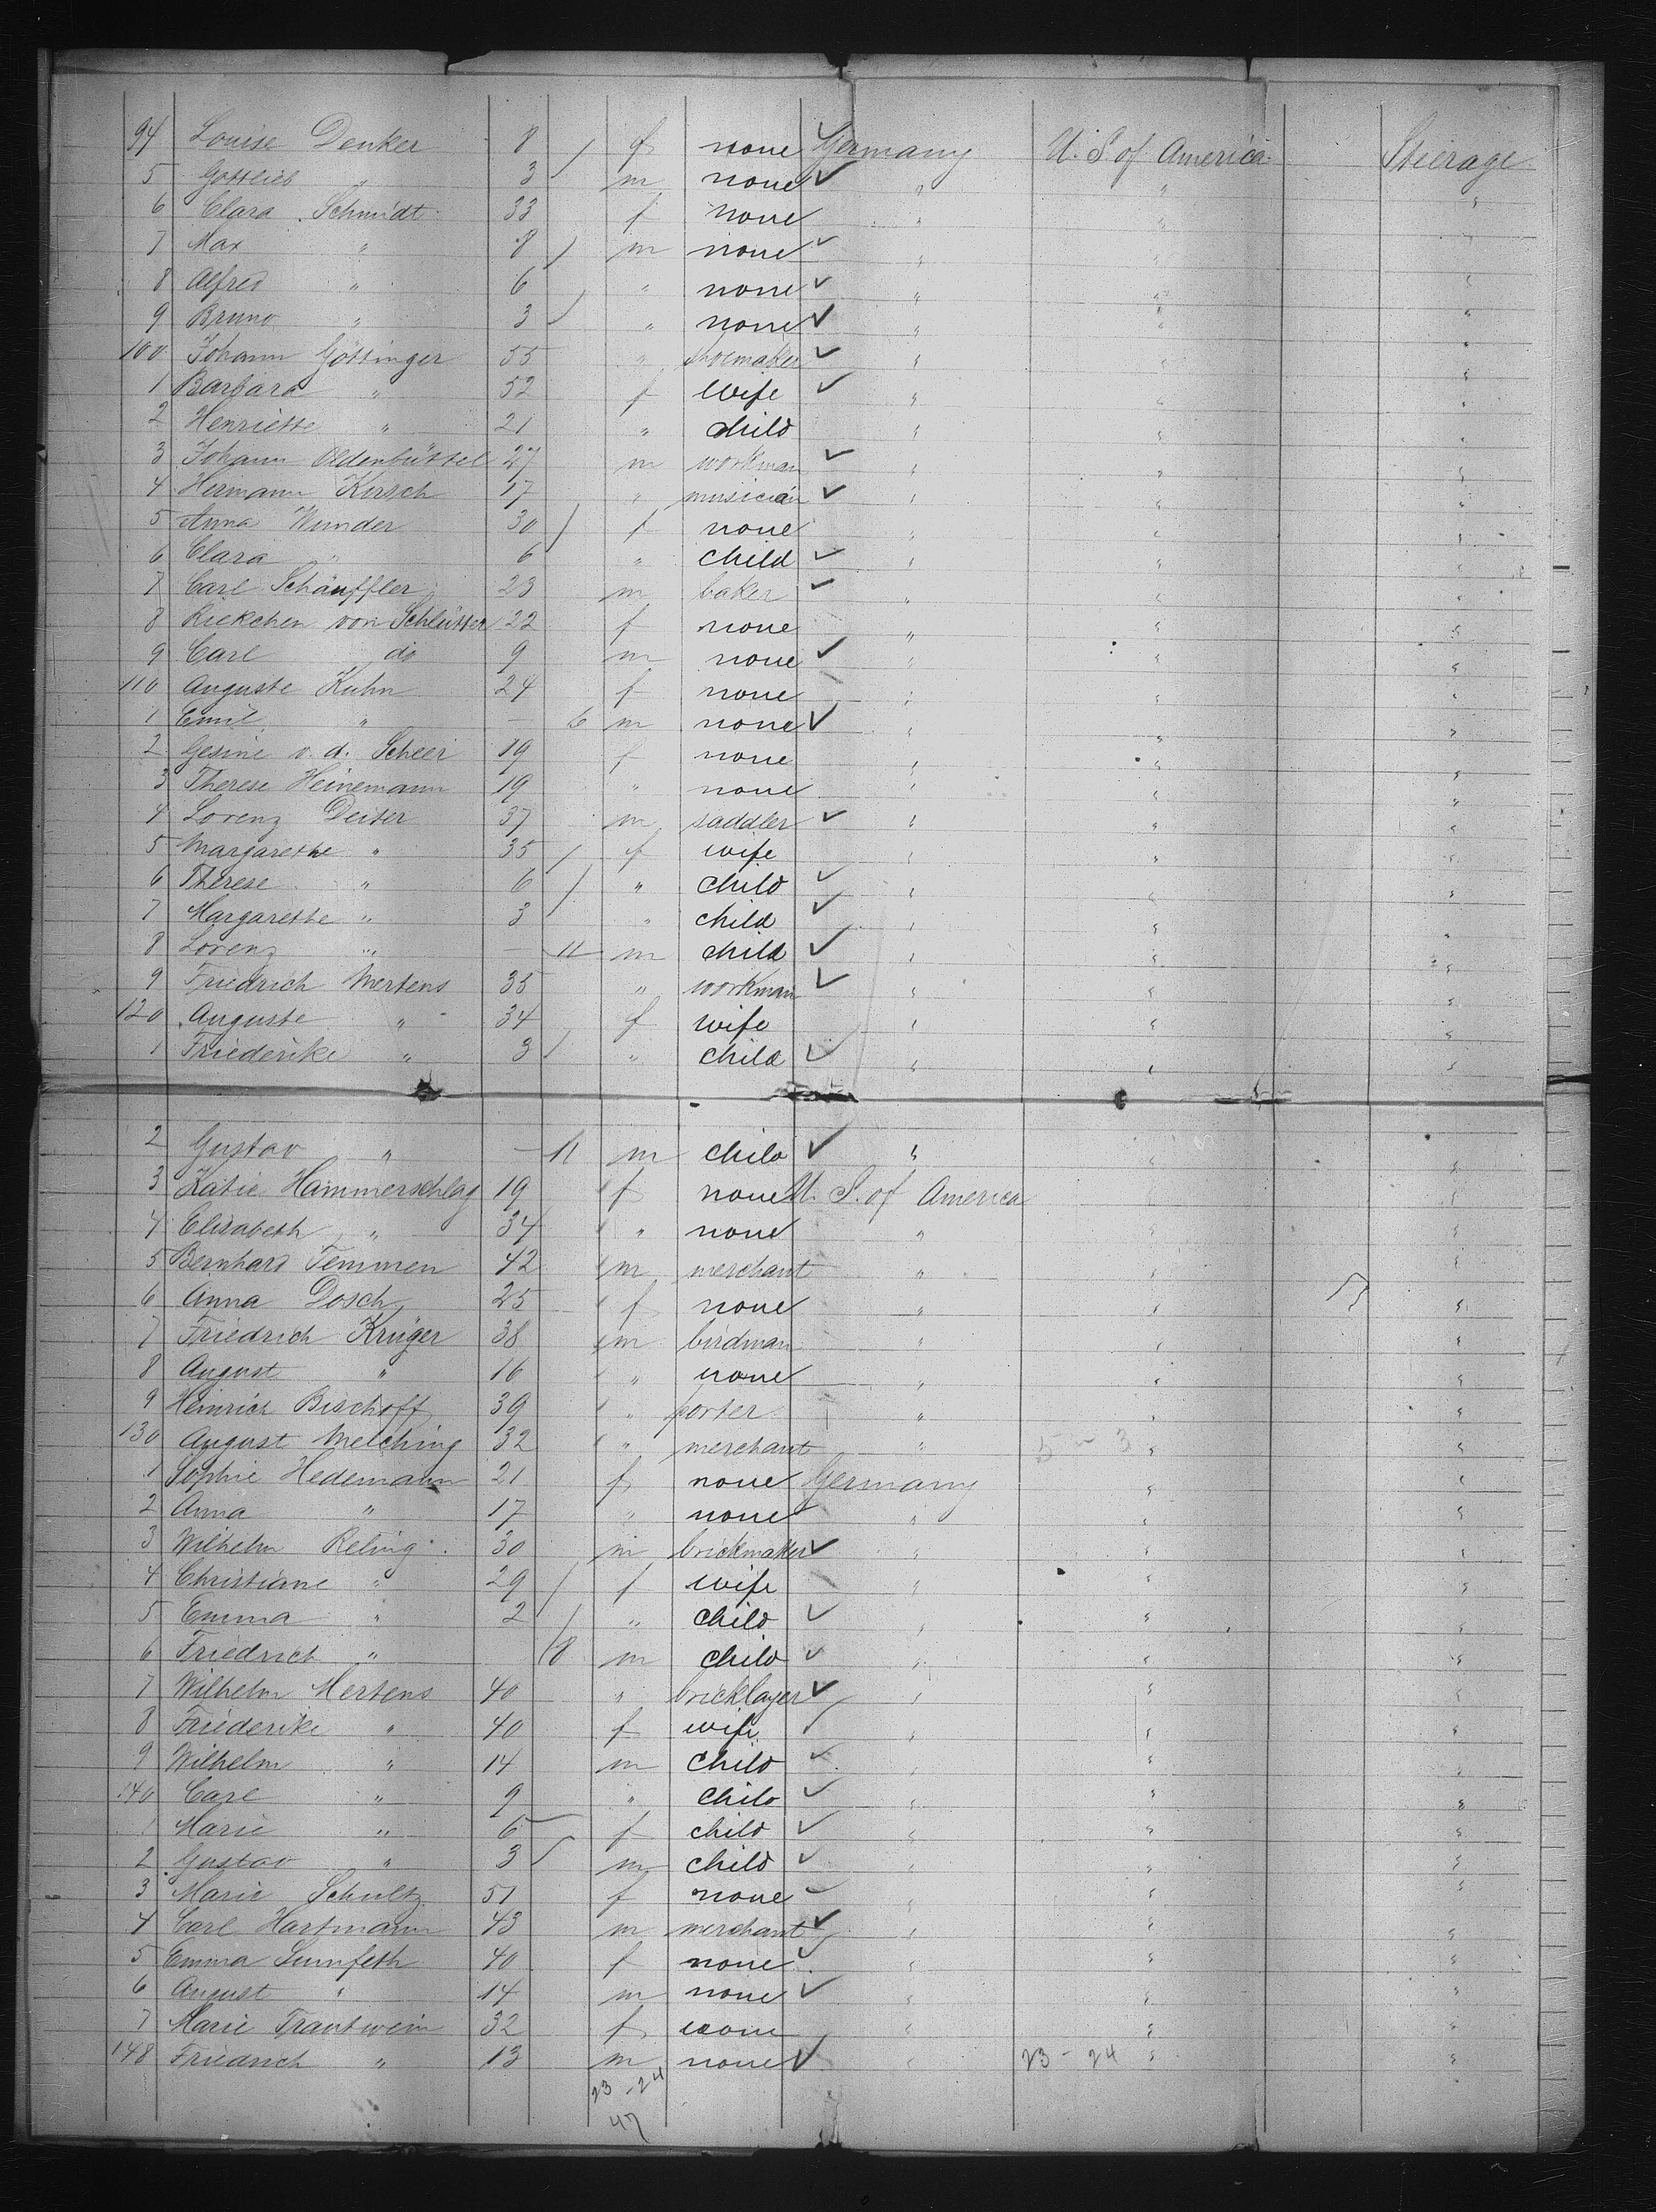 94 Louise Denker 8 f none Germany U. S. of America Steerage
5 Gottlieb " 3 m none " " "
6 Clara Schmidt 33 f none " " "
7 Max " 8 m none " " "
8 Alfred " 6 " none " " "
9 Bruno " 3 " none " " "
100 Johann Göttinger 55 " shoemaker " " "
1 Barbara " 52 f wife " " "
2 Henriette " 21 " child " " "
3 Johann Oldenbüttel 27 m workman " " "
4 Hermann Kirsch 17 " musician " " "
5 Anna Wunder 30 f none " " "
6 Clara " 6 " child " " "
7 Carl Schäuffler 23 m baker " " "
8 Riekchen von Schlütter 22 f none " " "
9 Carl do 9 m none " " "
110 Auguste Kuhn 24 f none " " "
1 Emil " — 6 m none " " "
2 Gesine v. d. Scheer 19 f none " " "
3 Therese Heinemann 19 " none " " "
4 Lorenz Deiter 37 m saddler " " "
5 Margarethe " 35 f wife " " "
6 Therese " 6 " child " " "
7 Margarethe " 3 " child " " "
8 Lorenz " — 11 m child " " "
9 Friedrich Mertens 35 " workman " " "
120 Auguste " 34 f wife " " "
1 Friederike " 3 " child " " "
2 Gustav " — 11 m child " " "
3 Katie Hammerschlag 19 f none U. S. of America " "
4 Elisabeth " 34 " none " " "
5 Bernhard Temmen 42 m merchant " " "
6 Anna Dosch 25 f none " " "
7 Friedrich Krüger 38 m birdman " " "
8 August " 16 " none " " "
9 Heinrich Bischoff 39 " porter " " "
130 August Melching 32 " merchant " 5 - 3 " "
1 Sophie Hedemann 21 f none Germany " "
2 Anna " 17 " none " " "
3 Wilhelm Reling 30 m brickmaker " " "
4 Christiane " 29 f wife " " "
5 Emma " 2 " child " " "
6 Friedrich " 8 m child " " "
7 Wilhelm Mertens 40 " bricklayer " " "
8 Friederike " 40 f wife " " "
9 Wilhelm " 14 m child " " "
140 Carl " 9 " child " " "
1 Marie " 6 f child " " "
2 Gustav " 3 m child " " "
3 Marie Schultz 51 f none " " "
4 Carl Hartmann 43 m merchant " " "
5 Emma 40 f none " " "
6 August " 14 m none " " "
7 Marie Trautwein 32 f none " " "
148 Friedrich " 13 m none " 23 - 24 " "
23 - 24
47